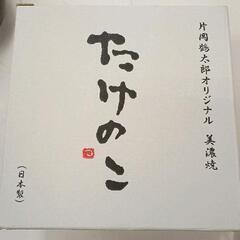 片岡鶴太郎オリジナル 美濃焼
たけのこ
(日本製)